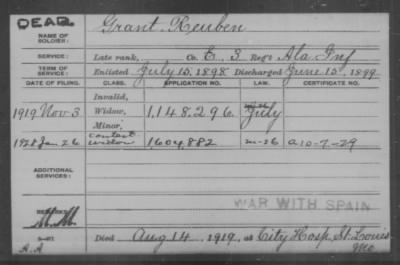 DEAD.
NAME OF SOLDIER: Grant, Reuben
SERVICE: Late rank, Co. E, 3 Reg't Ala Inf
TERM OF SERVICE: Enlisted July 15, 1898 Discharged June 15, 1899
DATE OF FILING. CLASS. APPLICATION NO. LAW. CERTIFICATE NO.
Invalid,
1919 Nov 3 Widow, 1,148,296. July
Minor,
1928 Jan 26 contest widow 1604,882 m-26 a10-7-29
ADDITIONAL SERVICES:
WAR WITH SPAIN
REMARKS:
M.M.
Died Aug 14, 1919, at City Hosp, St. Louis
A.A Mo